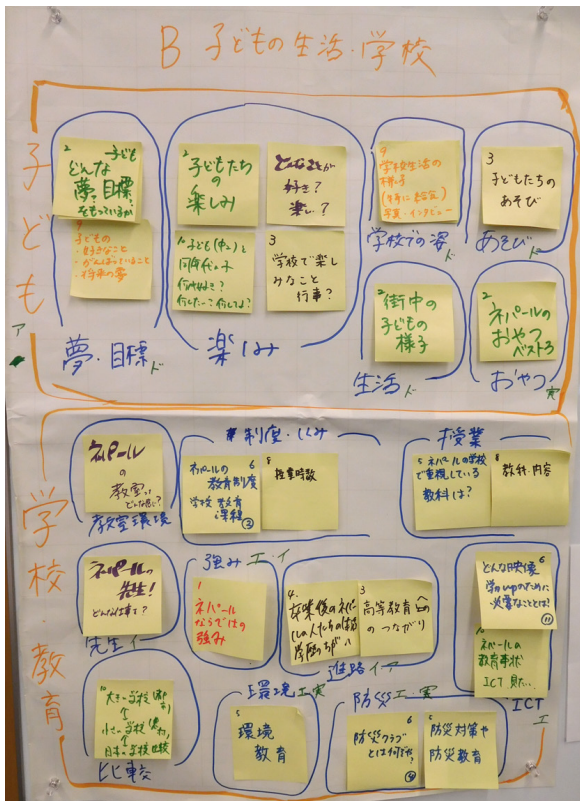 B 子どもの生活・学校
子ども
ア
2
子ども
どんな
夢?目標?
をもっているか
9
子どもの
・好きなこと
・がんばっていること
・将来の夢
夢・目標 ド
2
子どもたち
の
楽しみ
どんなことが
好き?
楽しい?
子ども(中2)と
同年代の子
何が好き?
3
学校で楽し
みなこと
行事?
楽しみ
9
学校生活の
様子
写真・インタビュー
学校での姿 ド
3
子どもたちの
あそび
あそび ド
2
街中の
子どもの
様子
生活 ド
2
ネパールの
おやつ
ベスト3
おやつ 実
学校・教育
ネパール
の
教室って
どんな感じ?
教室環境
制度・しくみ
6
ネパールの
教育制度
学校 教育
課程
②
8
授業時数
授業
5 ネパールの学校
で重視している
教科は?
8
教科・内容
ネパールの
先生!
どんな仕事?
先生 イ
強み エ・イ
1
ネパール
ならではの
強み
4.
卒業後のネパー
ルの人たちの
学歴のちがい
3
高等教育への
つながり
進路 イ ア
6
どんな映像
学力upのために
必要なことは?
⑪
ネパールの
教育事情
ICT 見たい
ICT
エ
10
大きい学校
小さい学校
日本の学校 比較
比較
環境 エ実
5
環境
教育
防災 エ・実
6
防災クラブ
とは何ですか?
④
5
防災対策や
防災教育